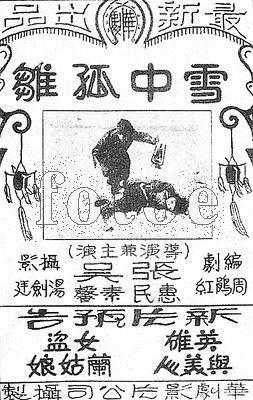 最新出品
雪中孤雛
fotoe
(導演兼主演)
張惠民
吳素馨
編劇
周鵑紅
攝影
湯劍廷
新片預告
英雄
與美人
女盜
蘭姑娘
華劇影片公司攝製